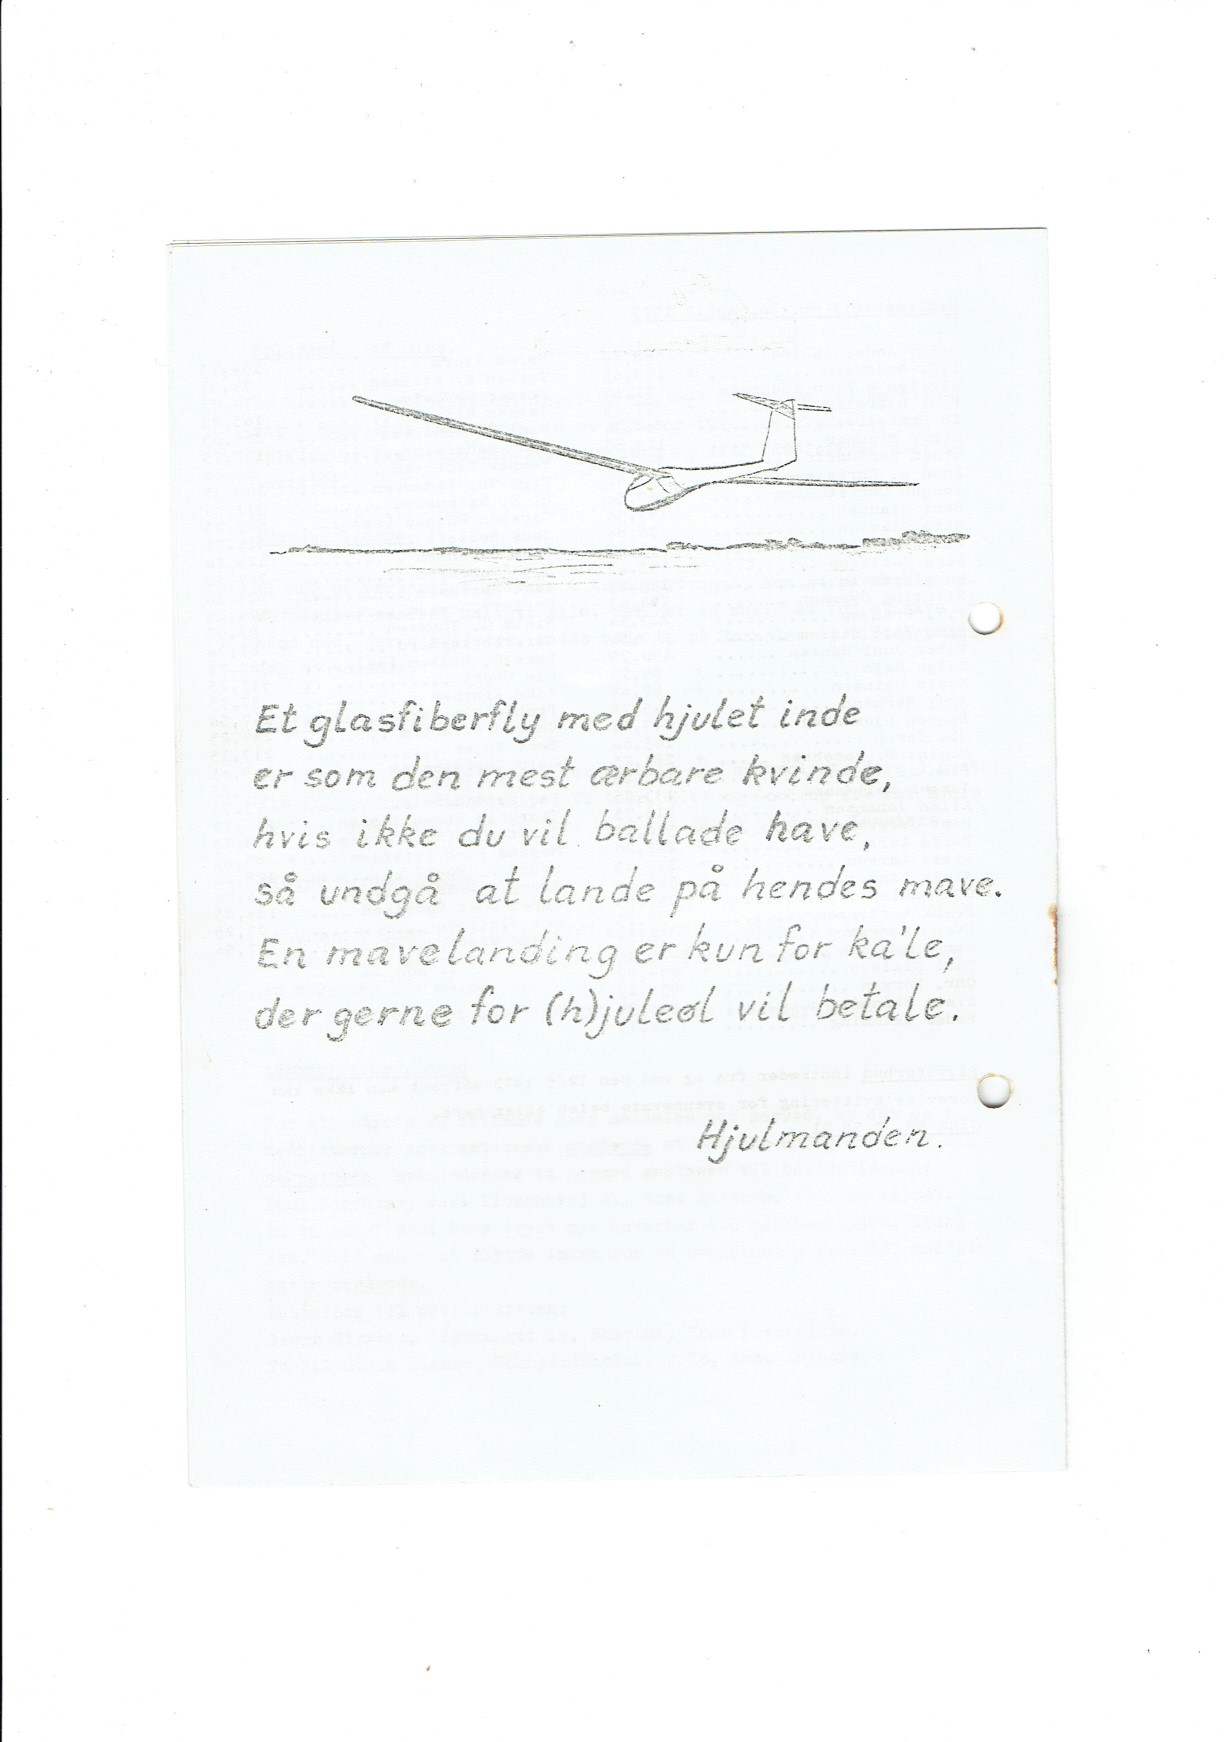 Et glasfiberfly med hjulet inde
er som den mest ærbare kvinde,
hvis ikke du vil ballade have,
så undgå at lande på hendes mave.
En mavelanding er kun for ka'le,
der gerne for (h)juleøl vil betale.
Hjulmanden.